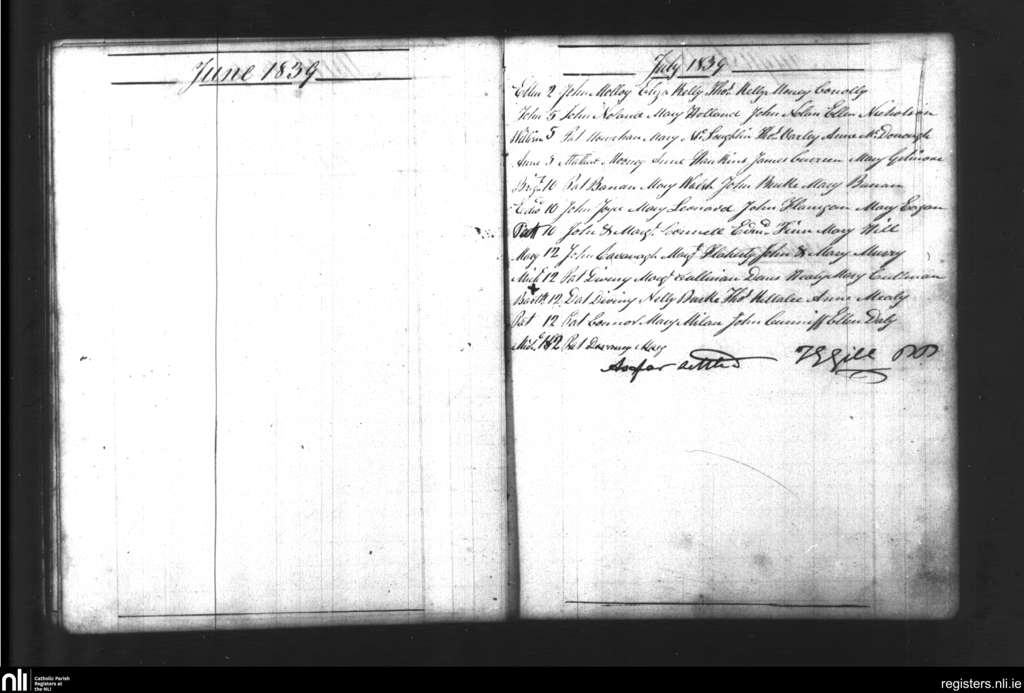 June 1839
July 1839
Ellen 2 John Molloy Eliza Kelly Thos. Kelly Mary Conolly
John 5 John Noland Mary Holland John Nolan Ellen Nicholson
5 Pat Mary Mc Loughlin Thos. Varley Anne Mc Donough
Anne 5 Mooney Anne Hawkins James Mary Gilmore
Brigt. 10 Pat Banan Mary Walsh John Burke Mary Banan
10 John Joyce Mary Leonard John Flanigan Mary Eagan
Patt 10 John & Margt. Connell Edmd. Finn Mary Hill
Mary 12 John Cavanagh Margt. Flaherty John & Mary
Michl 12 Pat Diviny Mary Mary Cullinan
Barth 12 Pat Diviny Nelly Burke Thos Killalee Anne Mealy
Pat 12 Pat Connor Mary Milan John Cunniff Ellen Daly
Michl. 12 Pat Mary
As far settled
Gill PP
nli
Catholic Parish
Registers at
the NLI
registers.nli.ie